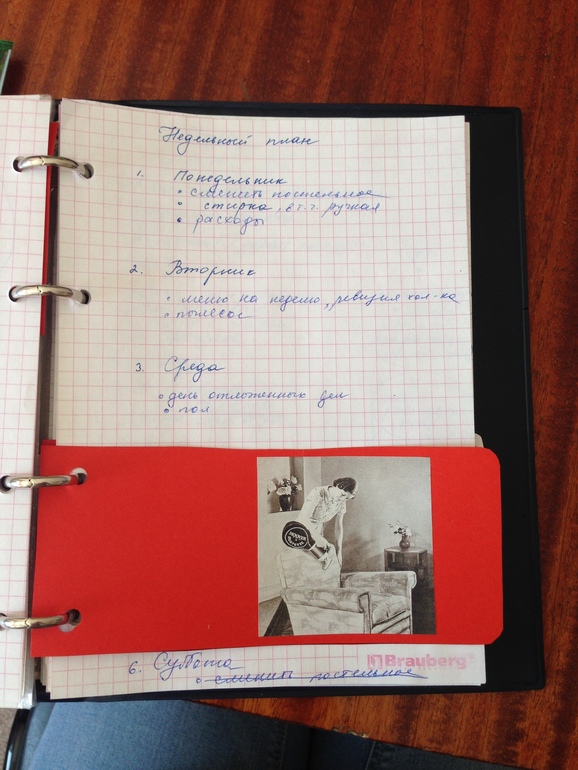 Недельный план
1. Понедельник
• сменить постельное
• стирка, в т.ч. ручная
• расходы
2. Вторник
• меню на неделю, ревизия хол-ка
• пылесос
3. Среда
• день отложенных дел
• пол
6. Суббота
Brauberg
• сменить постельное